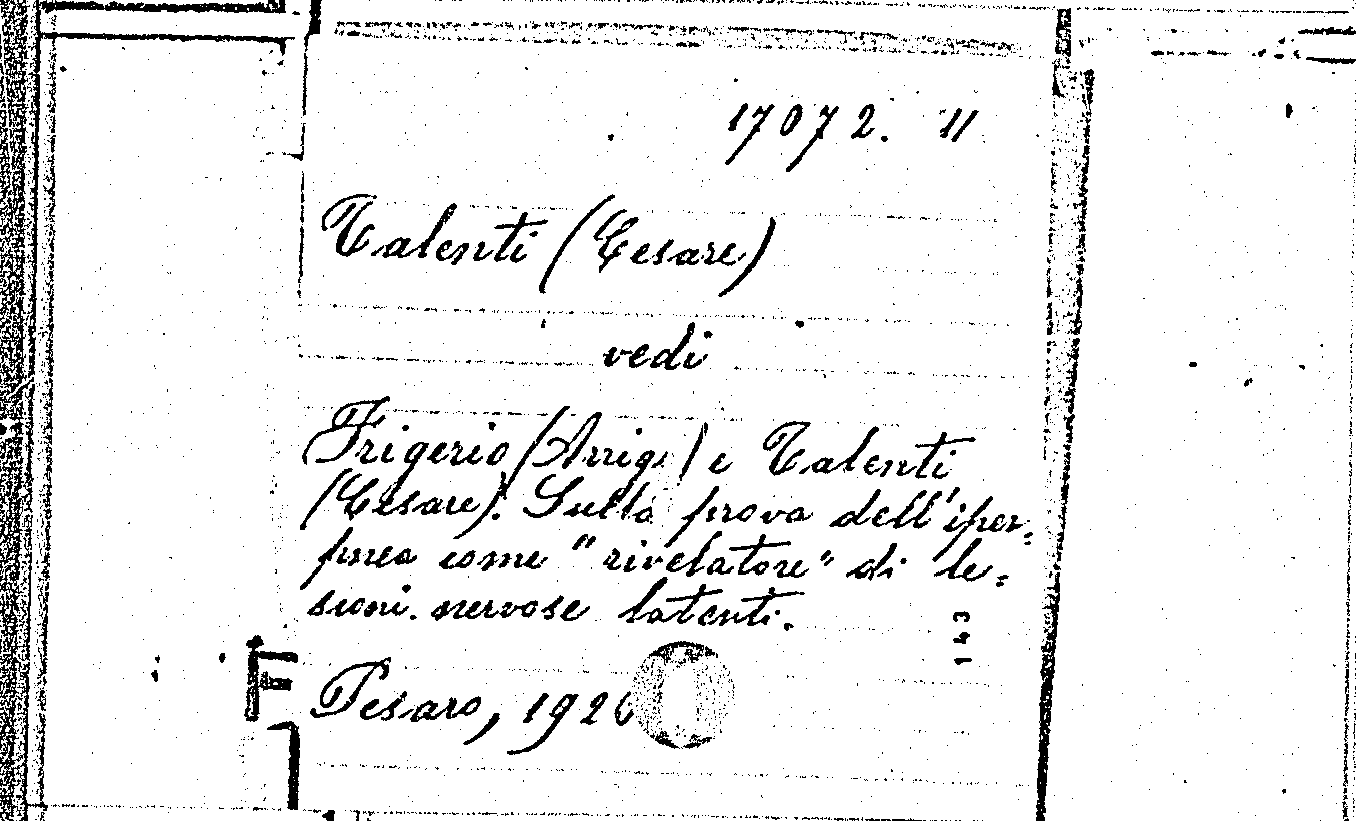 17072. 11
Talenti (Cesare)
vedi
Frigerio (Arrigo) e Talenti
(Cesare). Sulla prova dell'iper-
pnea come "rivelatore" di le-
sioni nervose latenti.
143
Pesaro, 1926